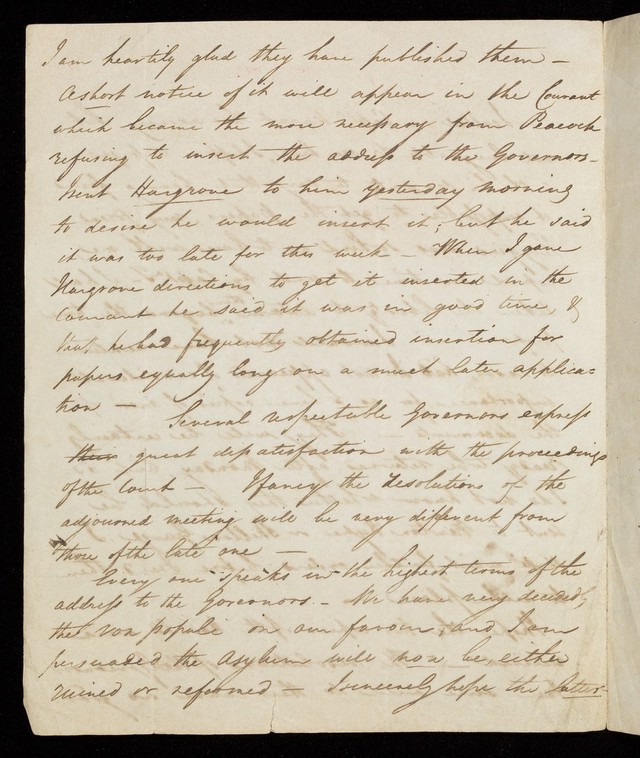 I am heartily glad they have published them –
A short notice of it will appear in the Courant
which became the more necessary from Peacock
refusing to insert the address to the Governors –
I sent Hargrove to him yesterday morning
to desire he would insert it; but he said
it was too late for this week – When I gave
Hargrove directions to get it inserted in the
Courant he said it was in good time, &
that he had frequently obtained insertion for
papers equally long on a much later applica=
tion – Several respectable Governors express
their great dissatisfaction with the proceedings
of the Court – I fancy the resolutions of the
adjourned meeting will be very different from
those of the late one –
Every one speaks in the highest terms of the
address to the Governors – We have very decidedly
the vox populi in our favour, and I am
persuaded the Asylum will now be either
ruined or reformed – I sincerely hope the latter –